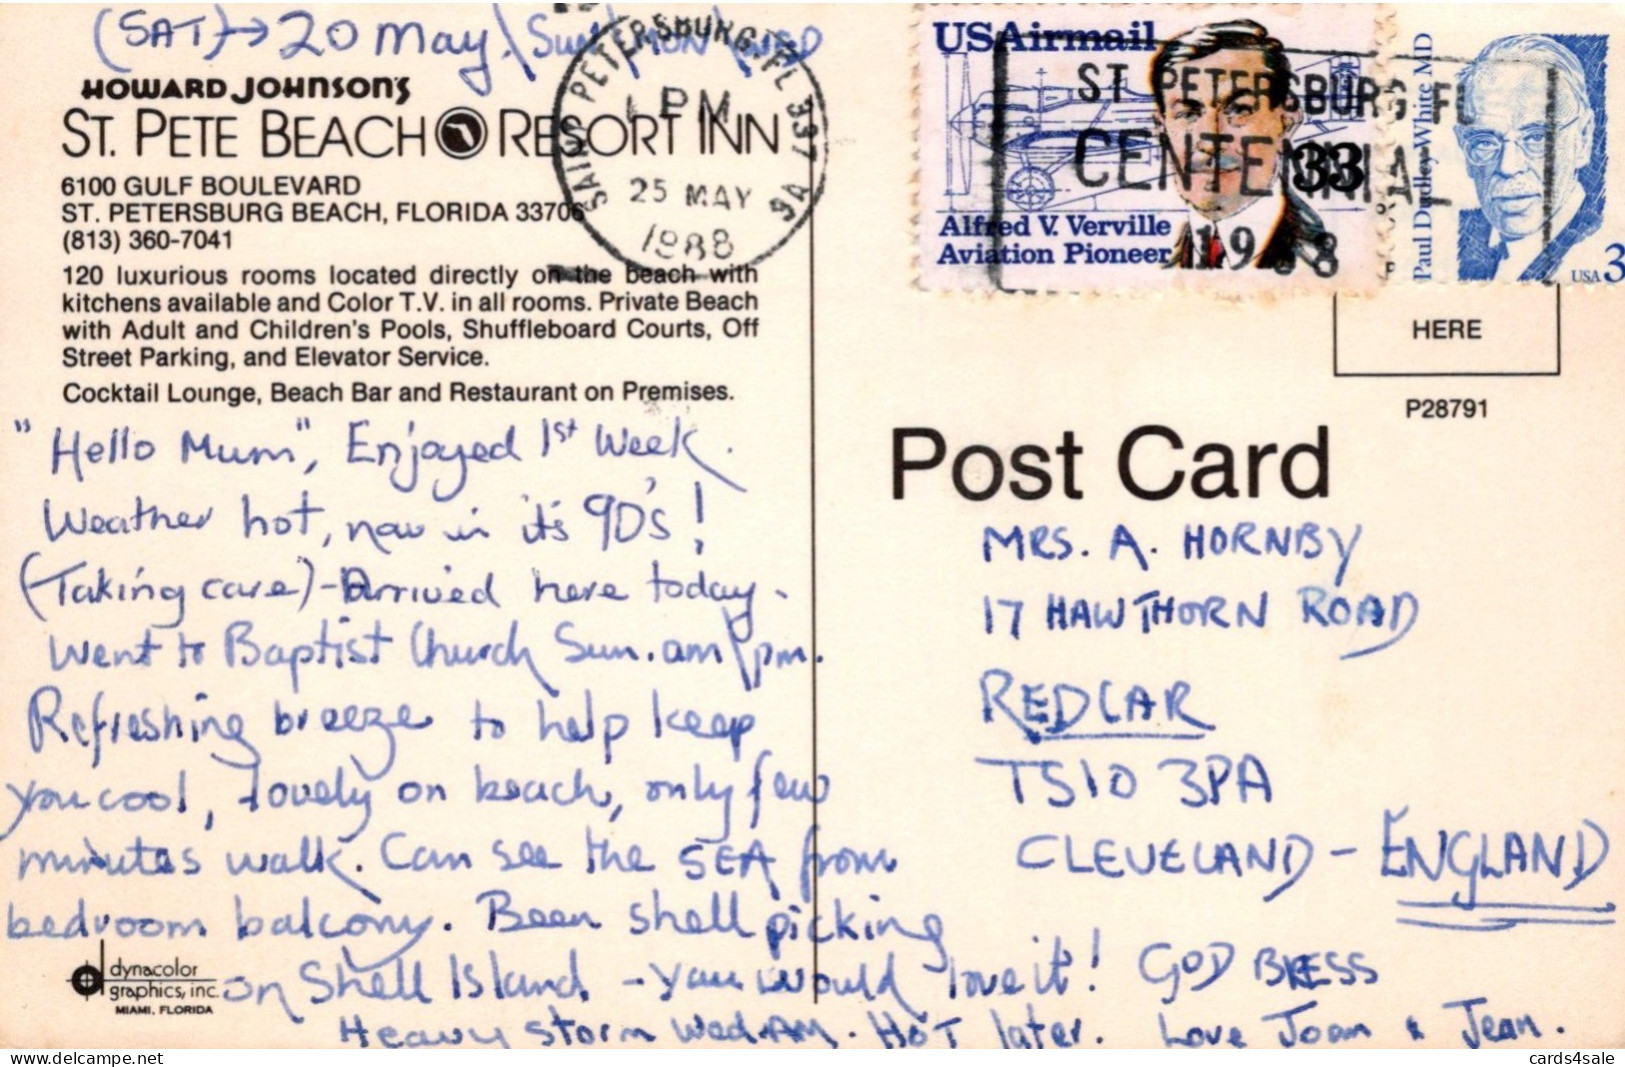 (SAT)→20 May \ Sun \ Mon \ Wed
HOWARD JOHNSON'S
ST. PETE BEACH RESORT INN
6100 GULF BOULEVARD
ST. PETERSBURG BEACH, FLORIDA 33706
(813) 360-7041
120 luxurious rooms located directly on the beach with
kitchens available and Color T.V. in all rooms. Private Beach
with Adult and Children's Pools, Shuffleboard Courts, Off
Street Parking, and Elevator Service.
Cocktail Lounge, Beach Bar and Restaurant on Premises.
"Hello Mum", Enjoyed 1st Week.
Weather hot, now in it's 90's!
(Taking care) - Arrived here today.
Went to Baptist Church Sun. am/pm.
Refreshing breeze to help keep
you cool, lovely on beach, only few
minutes walk. Can see the SEA from
bedroom balcony. Been shell picking
on Shell Island - you would love it! GOD BLESS
Heavy storm Wed. AM. HOT later. Love Joan & Jean.
dynacolor
graphics, inc.
MIAMI, FLORIDA
SAINT PETERSBURG, FL 337
PM
25 MAY
1988
USAirmail
33
Alfred V. Verville
Aviation Pioneer
ST. PETERSBURG FL
CENTENNIAL
1988
Paul Dudley White MD
USA 3
HERE
P28791
Post Card
MRS. A. HORNBY
17 HAWTHORN ROAD
REDCAR
TS10 3PA
CLEVELAND - ENGLAND
cards4sale